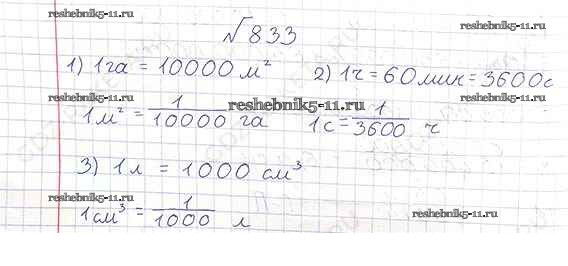 reshebnik5-11.ru
reshebnik5-11.ru
√833
1) 1га = 10000 м² 2) 1ч = 60мин = 3600с
reshebnik5-11.ru reshebnik5-11.ru reshebnik5-11.ru
1м² = 1/10000 га 1с = 1/3600 ч
3) 1л = 1000 см³
reshebnik5-11.ru
1см³ = 1/1000 л
reshebnik5-11.ru